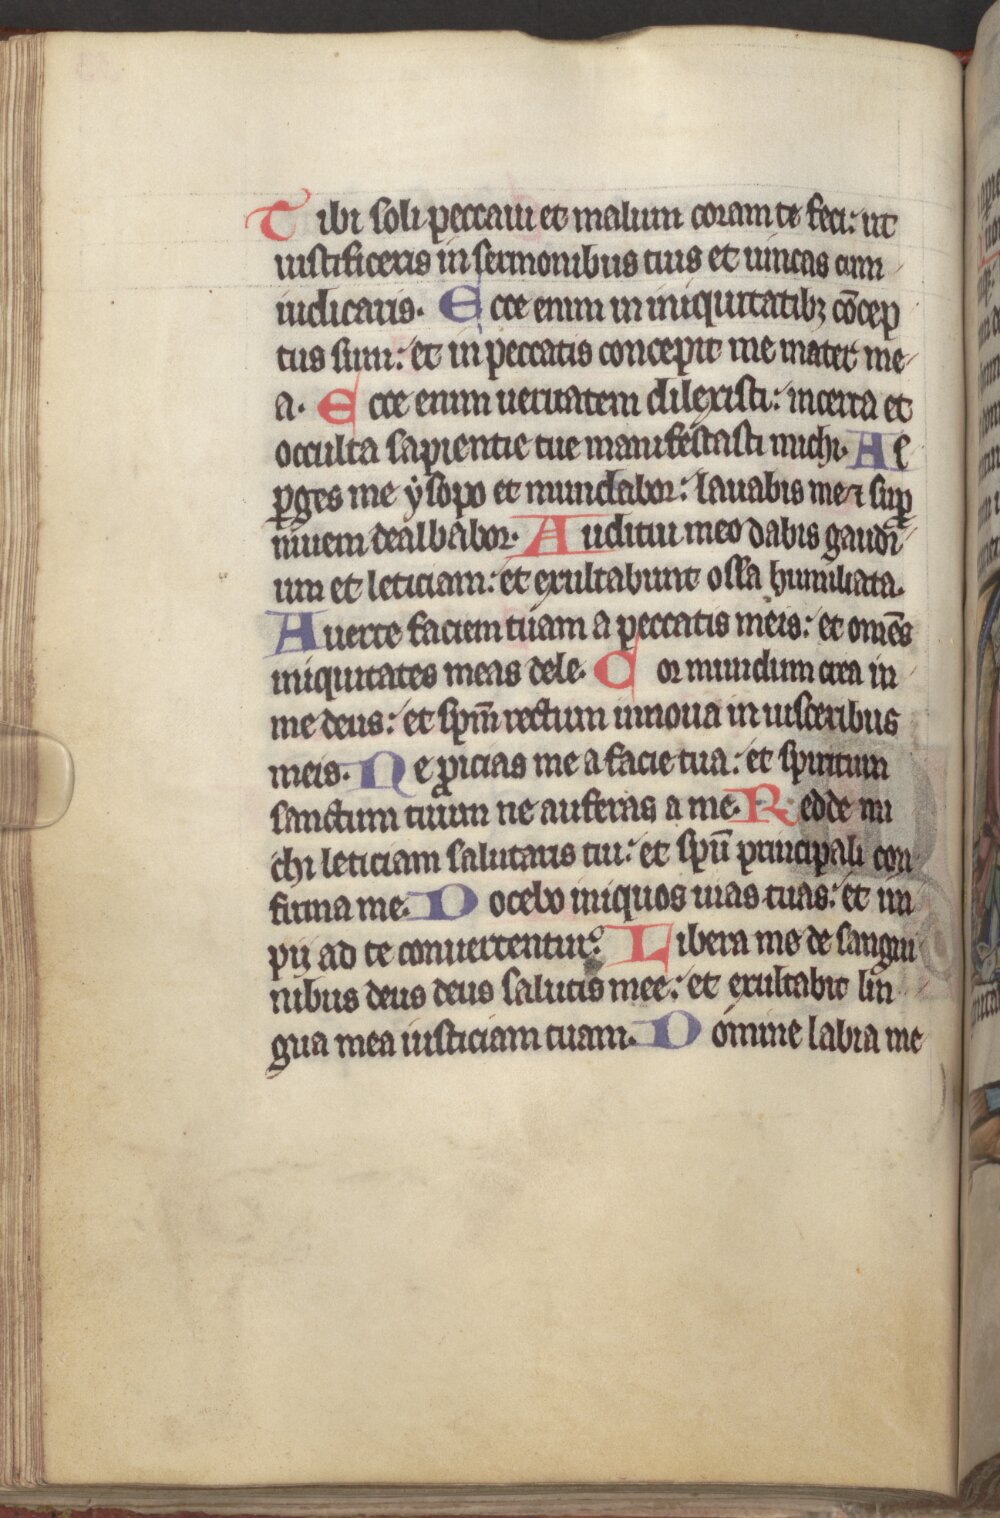 Tibi soli peccaui et malum coram te feci: ut
iustificeris in sermonibus tuis et uincas cum
iudicaris. Ecce enim in iniquitatibꝫ cōcep
tus sum: et in peccatis concepit me mater me
a. Ecce enim ueritatem dilexisti: incerta et
occulta sapientie tue manifestasti michi. As
ꝑges me ysopo et mundabor: lauabis me ⁊ suꝑ
niuem dealbabor. Auditui meo dabis gaudi
um et leticiam: et exultabunt ossa humiliata.
Auerte faciem tuam a peccatis meis: et omēs
iniquitates meas dele. Cor mundum crea in
me deus: et spm̄ rectum innoua in uisceribus
meis. Ne ꝓicias me a facie tua: et spiritum
sanctum tuum ne auferas a me. Redde mi
chi leticiam salutaris tui: et spū principali con
firma me. Docebo iniquos uias tuas: et im
pij ad te conuertentur. Libera me de sangui
nibus deus deus salutis mee: et exultabit lin
gua mea iusticiam tuam. Domine labia me